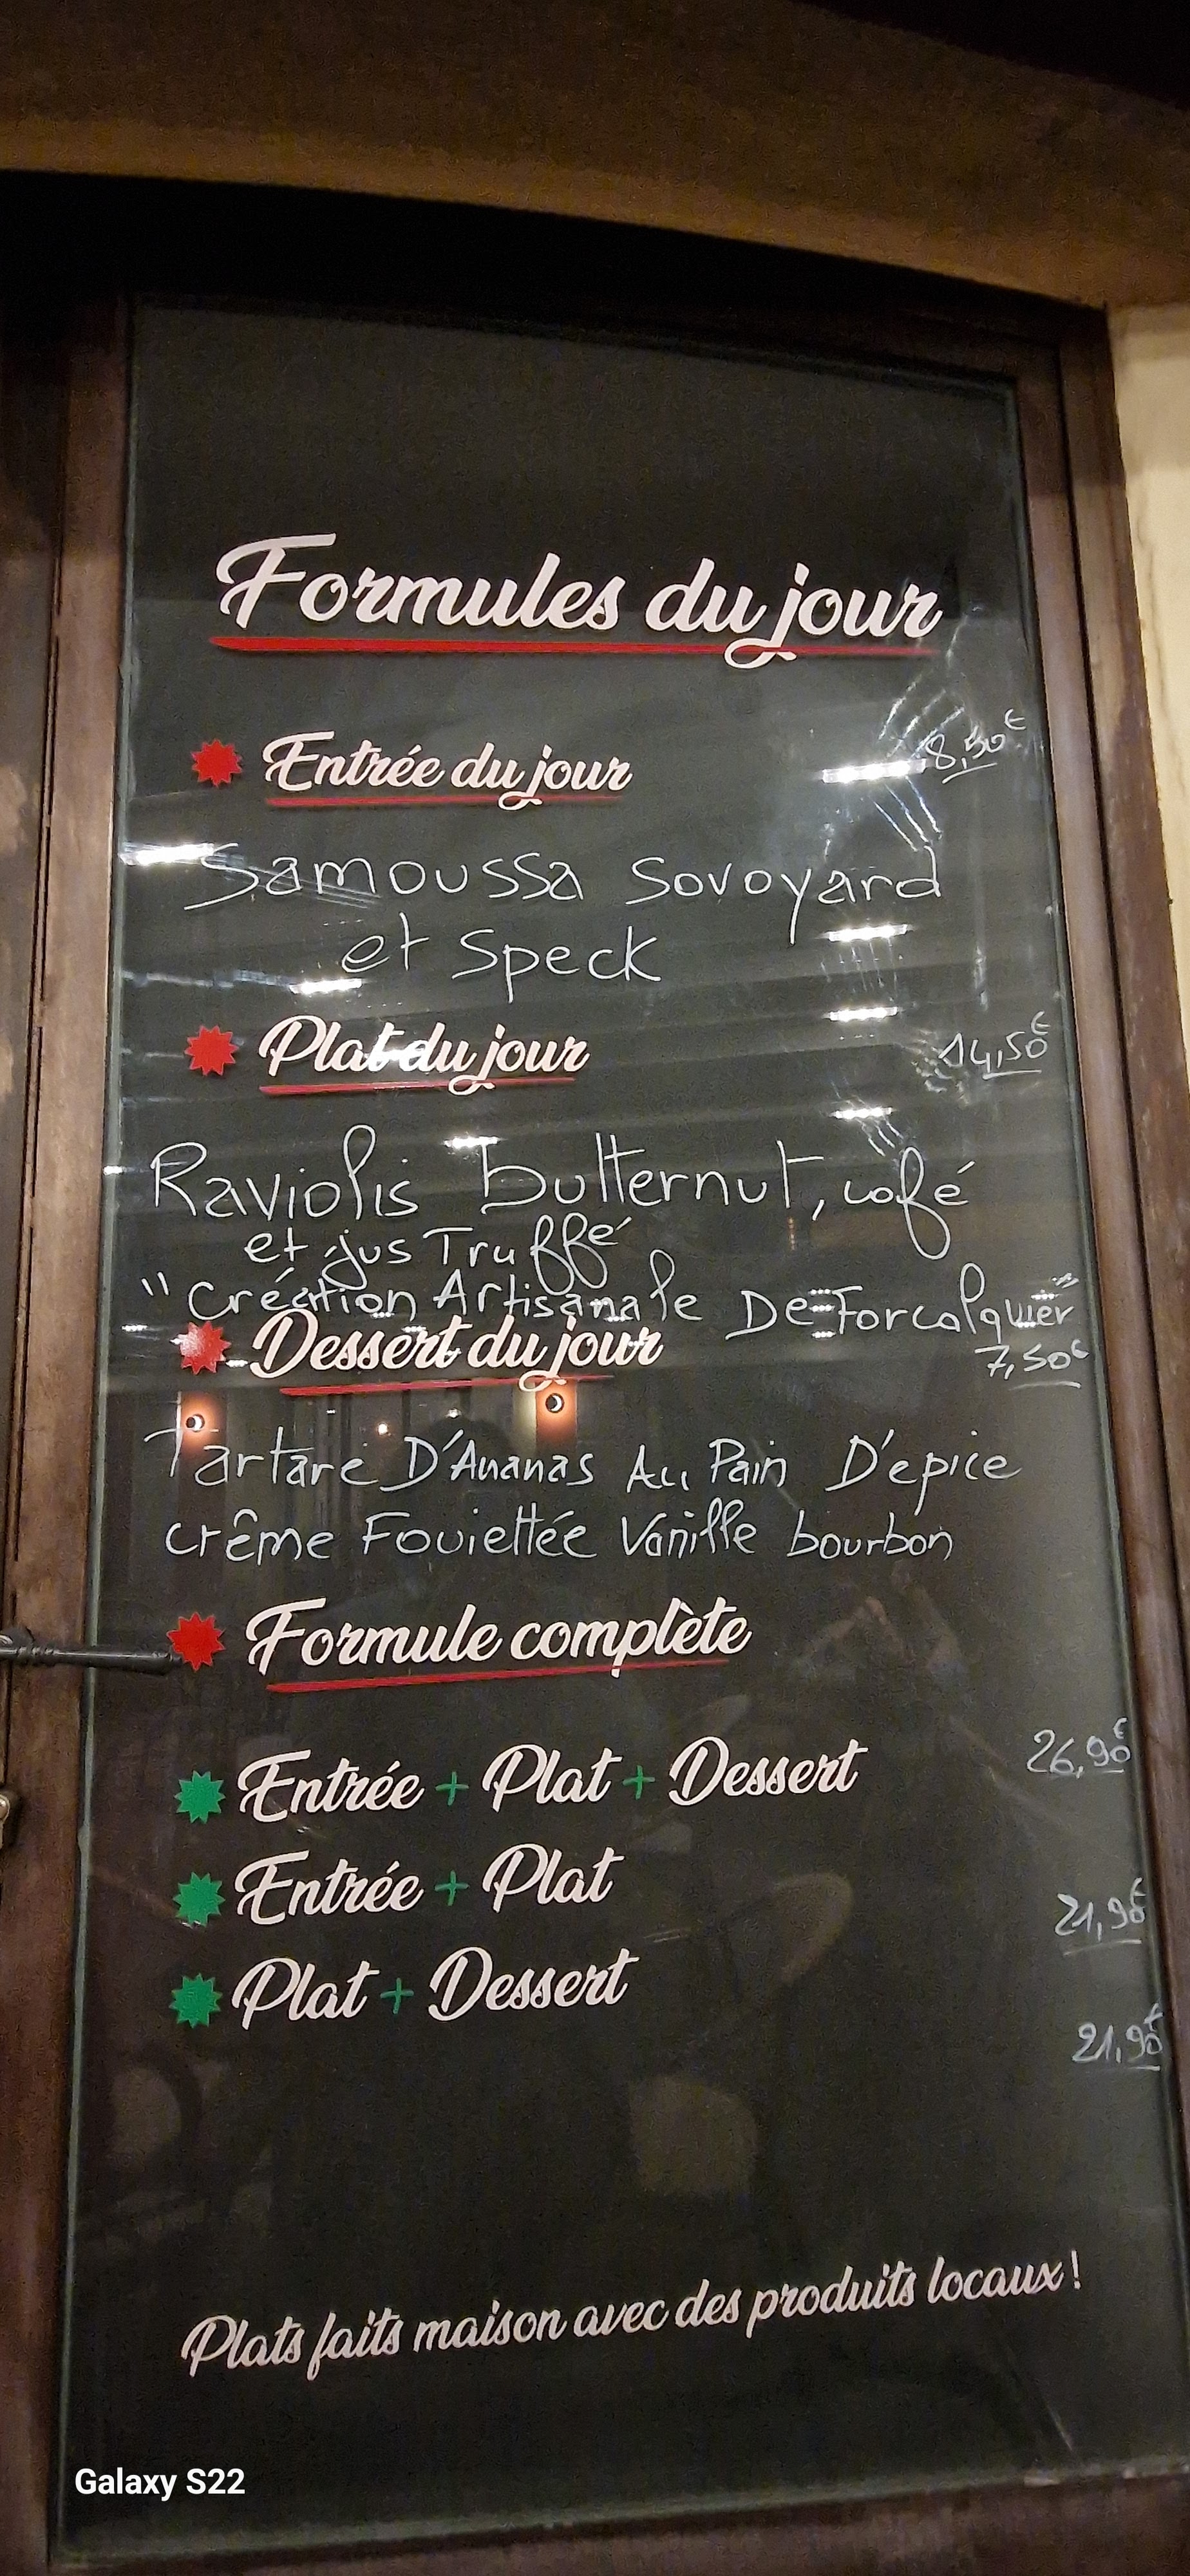 Formules du jour
Entrée du jour 8,50€
Samoussa Sovoyard
et Speck
Plat du jour 14,50€
Raviolis butternut, café
et jus Truffé
"Création Artisanale De Forcalquier"
Dessert du jour 7,50€
Tartare D'Ananas Au Pain D'epice
Crême Fouiettée Vanille bourbon
Formule complète
Entrée + Plat + Dessert 26,90€
Entrée + Plat 21,90€
Plat + Dessert 21,90€
Plats faits maison avec des produits locaux !
Galaxy S22